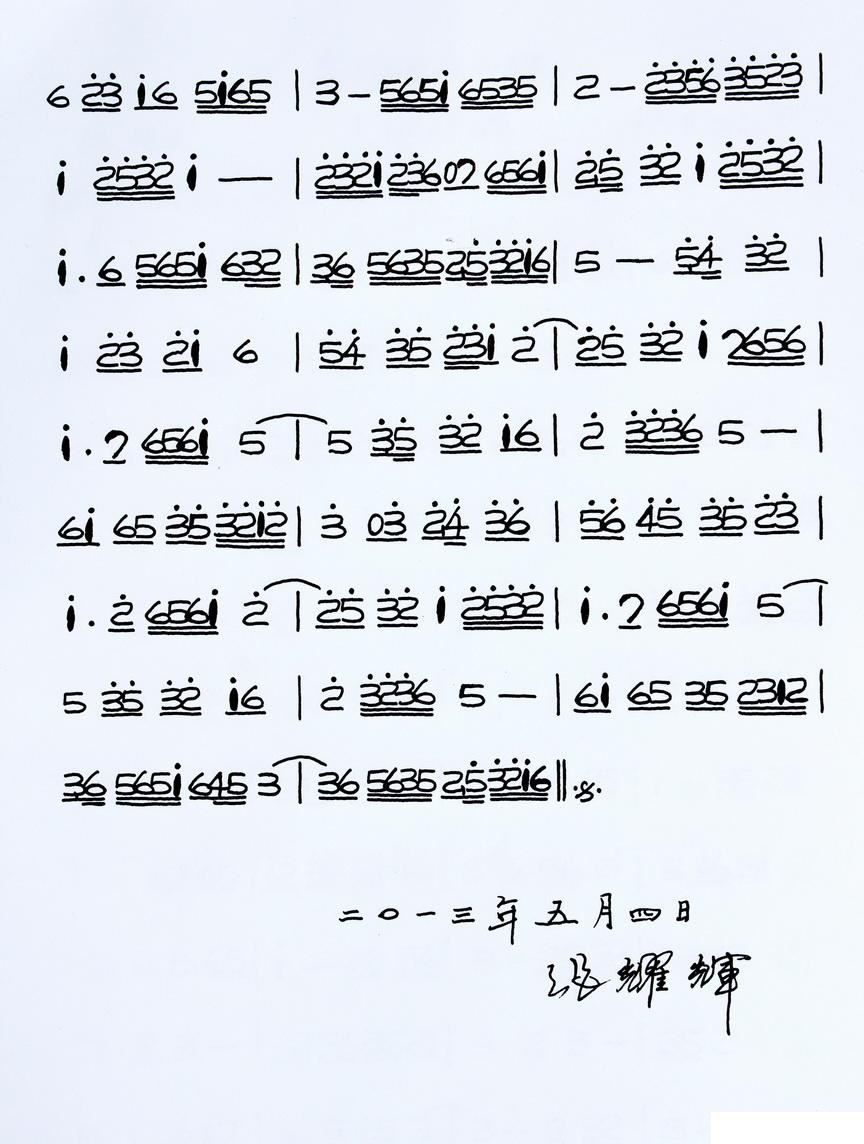 6 2̇3̇ i̇6 5i̇65 | 3 – 565i̇ 6535 | 2 – 2̇3̇5̇6̇ 3̇5̇2̇3̇ |
i̇ 2̇5̇3̇2̇ i̇ — | 2̇3̇2̇i̇ 2̇3̇6 07 656i̇ | 2̇5̇ 3̇2̇ i̇ 2̇5̇3̇2̇ |
i̇. 6 565i̇ 632 | 36 5635 2,5̇ 3̇2̇i̇6 | 5 — 5̇4̇ 3̇2̇ |
i̇ 2̇3̇ 2̇i̇ 6 | 5̇4̇ 3̇5̇ 2̇3̇i̇ 2̇ | 2̇5̇ 3̇2̇ i̇ 7656 |
i̇. 7 656i̇ 5 | 5 3̇5̇ 3̇2̇ i̇6 | 2̇ 3̇2̇3̇6 5 — |
6i̇ 65 3̇5̇ 3̇2̇i̇2̇ | 3̇ 03̇ 2̇4̇ 3̇6̇ | 5̇6̇ 4̇5̇ 3̇5̇ 2̇3̇ |
i̇. 2̇ 656i̇ 2̇ | 2̇5̇ 3̇2̇ i̇ 2̇5̇3̇2̇ | i̇. 7 656i̇ 5 |
5 3̇5̇ 3̇2̇ i̇6 | 2̇ 3̇2̇3̇6 5 — | 6i̇ 65 35 2312 |
36 565i̇ 645 3 | 36 5635 2,5̇ 3̇2̇i̇6 ‖
二〇一三年五月四日
耀輝